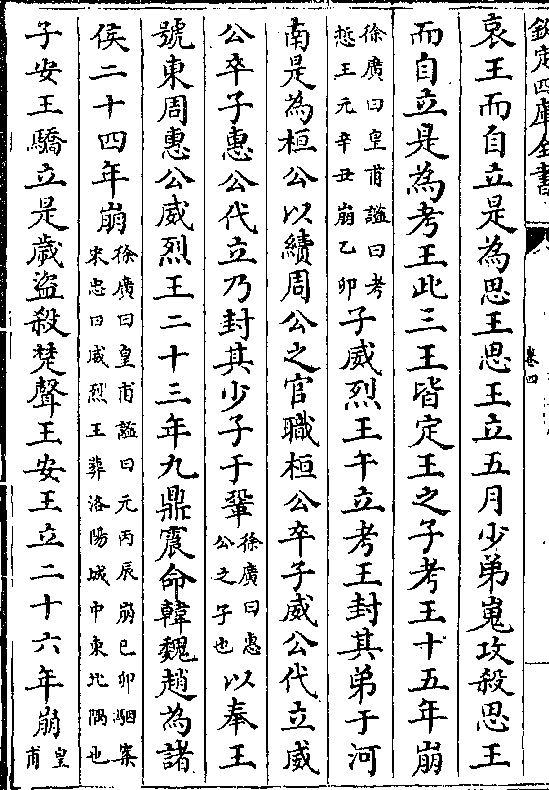 欽定四庫全書
卷四
哀王而自立是為思王思王立五月少弟嵬攻殺思王
而自立是為考王此三王皆定王之子考王十五年崩
徐廣曰皇甫謐曰考
悊王元辛丑崩乙卯
子威烈王午立考王封其弟于河
南是為桓公以續周公之官職桓公卒子威公代立威
公卒子惠公代立乃封其少子于鞏
徐廣曰惠
公之子也
以奉王
號東周惠公威烈王二十三年九鼎震命韓魏趙為諸
侯二十四年崩
徐廣曰皇甫謐曰元丙辰崩巳卯駰案
宋忠曰威烈王葬洛陽城中東北隅也
子安王驕立是歲盜殺楚聲王安王立二十六年崩
皇
甫